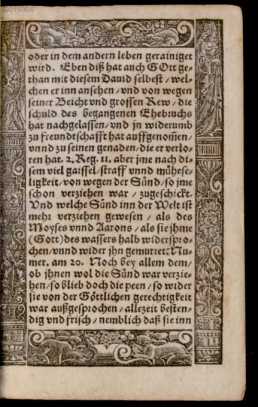 oder in dem andern leben gerainiget
wird. Eben diß hat auch GOtt ge-
than mit diesem Dauid selbest / wel-
chen er inn ansehen / vnd von wegen
seiner Beicht vnd grossen Rew / die
schuld des begangenen Ehebruchs
hat nachgelassen / vnd jn widerumb
zu freundtschafft hat auffgenom̃en /
vnnd zu seinen genaden / die er verlo-
ren hat. 2. Reg. 11. aber jme nach di-
sem viel gaissel / straff vnnd mühese-
ligkeit / von wegen der Sünd / so jme
schon verziehen war / zugeschickt.
Vnd welche Sünd inn der Welt ist
mehr verziehen gewesen / als des
Moyses vnnd Aarons / als sie jhme
(Gott) des wassers halb widerspro-
chen / vnnd wider jhn gemurret: Nu-
mer. am 20. Noch bey allem dem /
ob jhnen wol die Sünd war verzie-
hen / so blieb doch die peen / so wider
sie von der Göttlichen gerechtigkeit
war außgesprochen / allezeit besten-
dig vnd frisch / nemblich daß sie inn